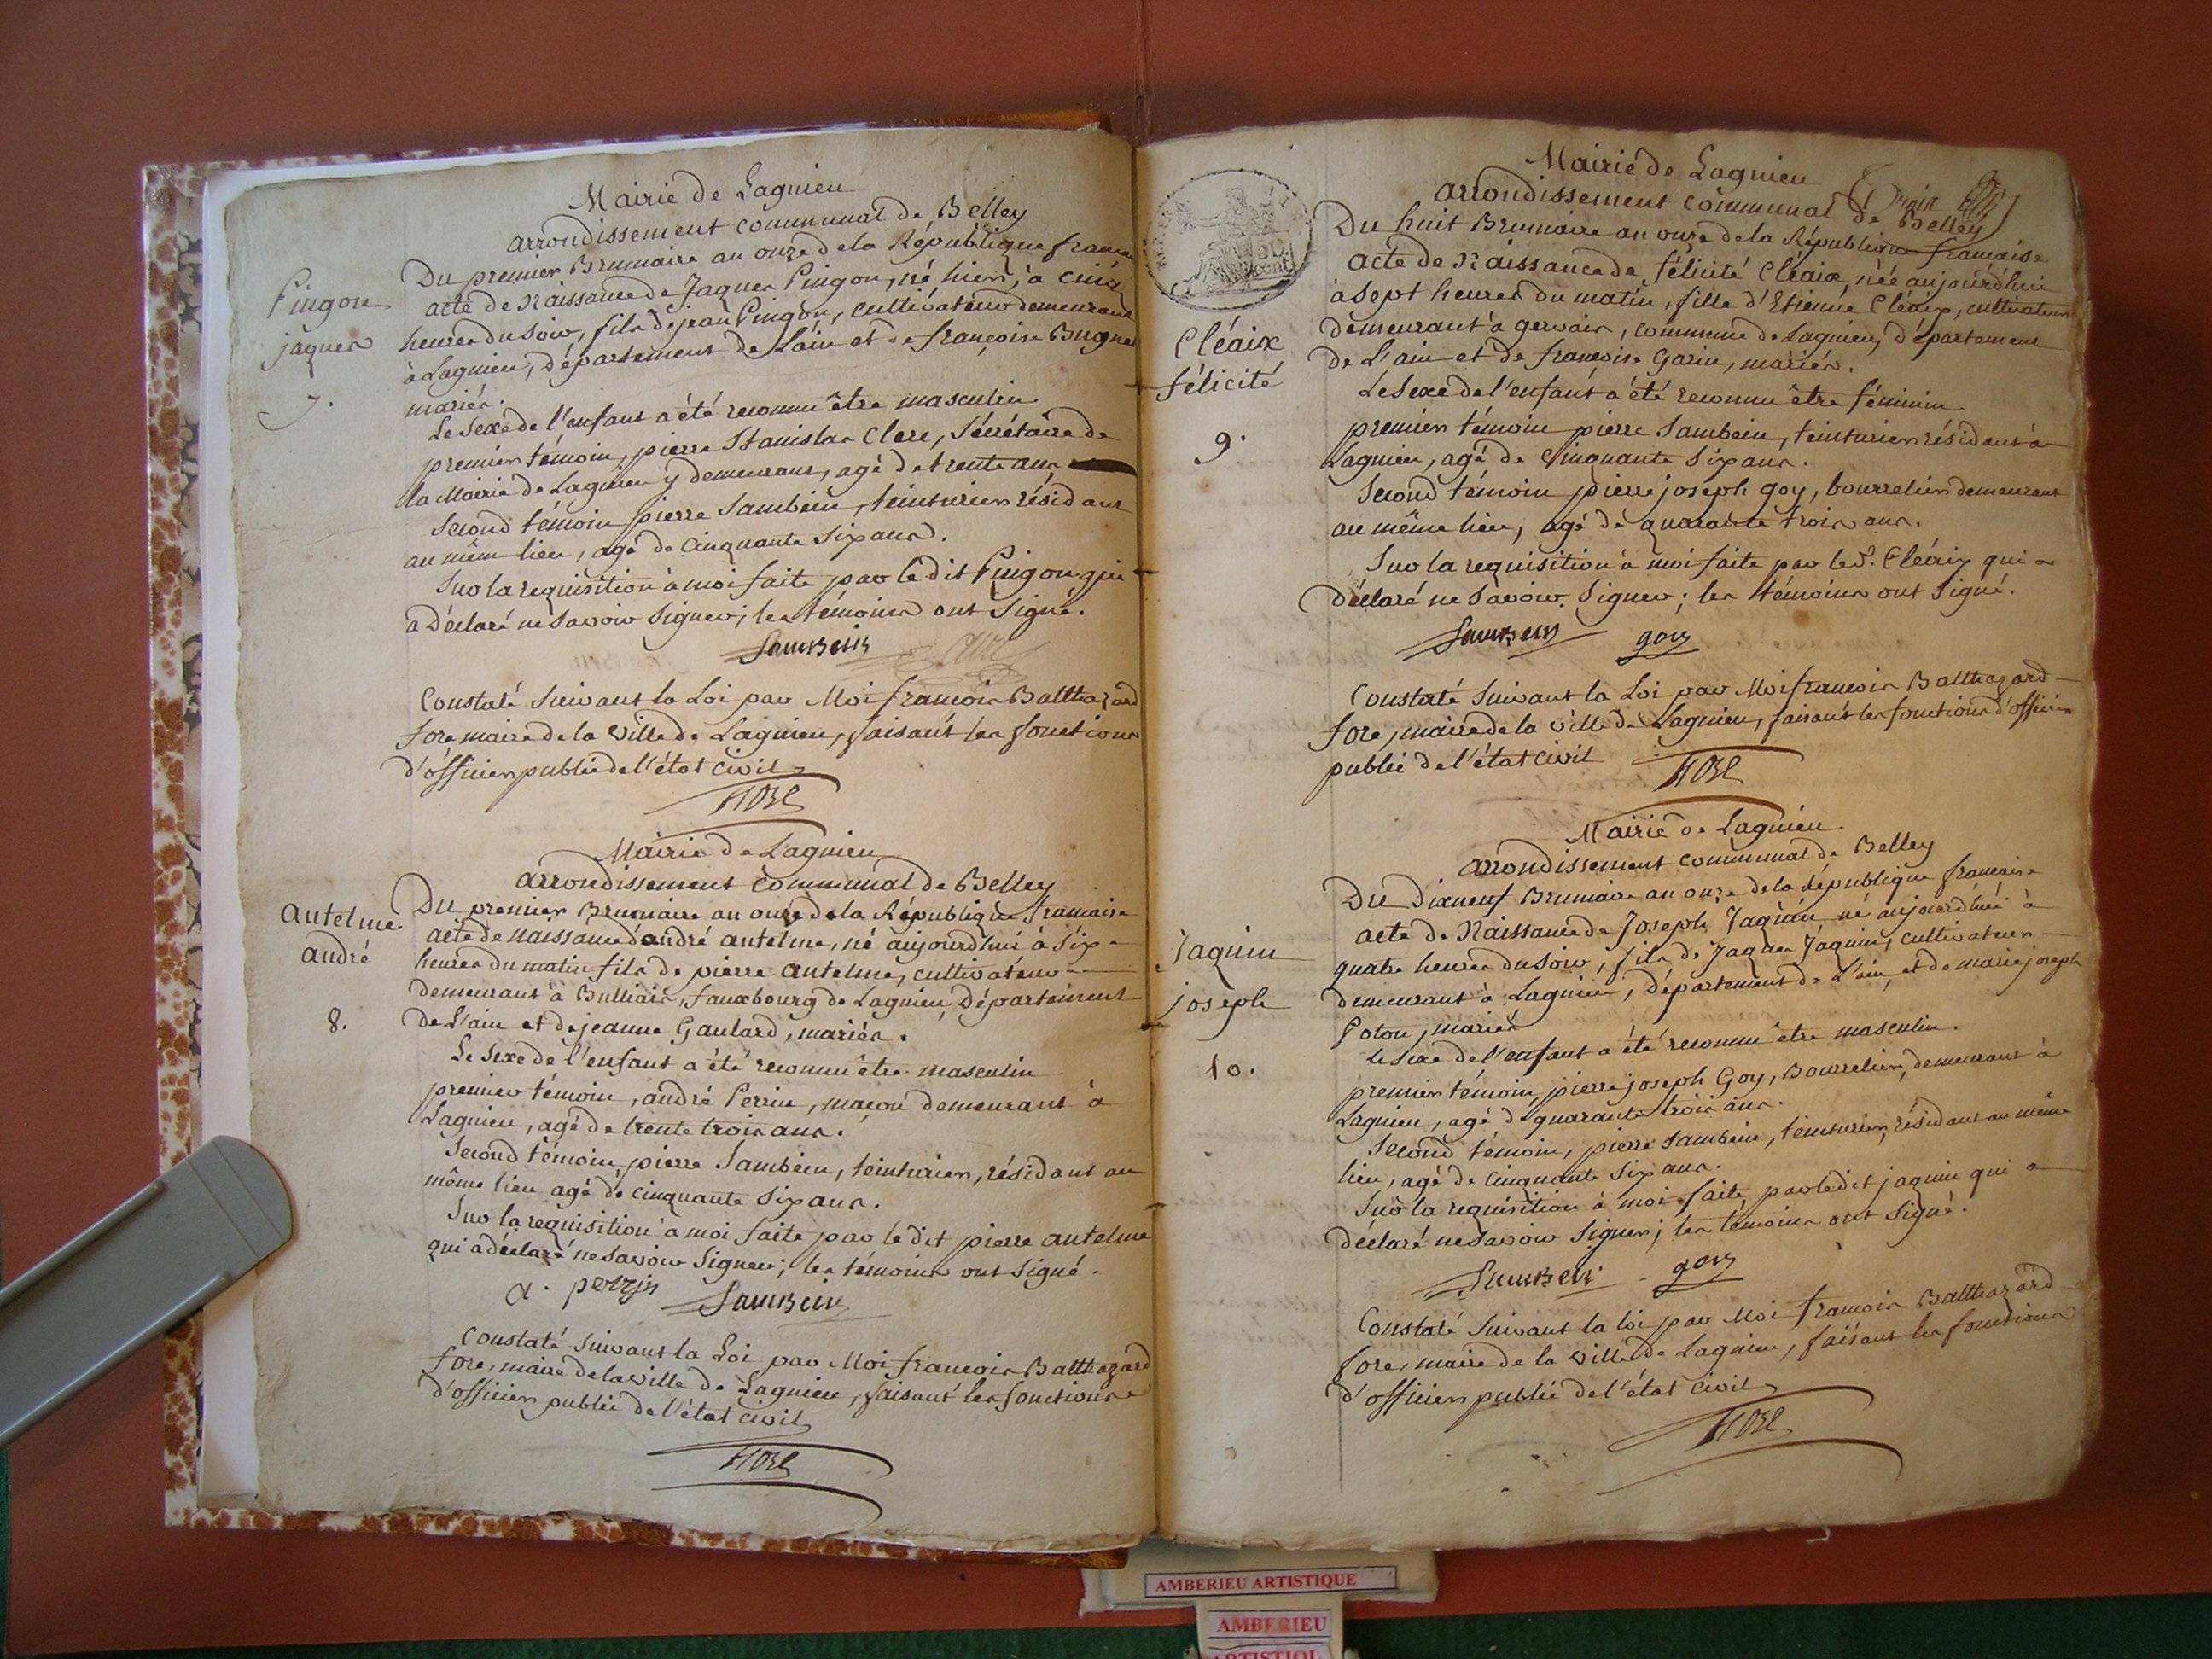 Mairie de Lagnieu
arrondissement communal de Belley
Du premier Brumaire an onze de la République françai
Pingon
jaques
7.
acte de Naissance de Jaques Pingon, né hier, à cinq
heures du soir, fils de jean Pingon, cultivateur demeurant
à Lagnieu, département de L'ain et de françoise Bugne
mariés.
Le Sexe de l'enfant a été reconnu être masculin
premier témoin, pierre Stanislas Clerc, Sécrétaire de
la Mairie de Lagnieu y demeurant, agé de trente ans
Second témoin pierre Sambein, teinturier résidant
au même lieu, agé de cinquante six ans.
Sur la requisition à moi faite par le dit Pingon qui
a déclaré ne savoir signer; les témoins ont signé.
Sambein
Constaté suivant la Loi par Moi françois Balthazard
fore, maire de la ville de Lagnieu, faisant les fonctions
d'officier public de l'état civil
fore
Mairie de Lagnieu
arrondissement communal de Belley
Antelme
andré
8.
Du premier Brumaire an onze de la République francaise
acte de naissance d'andré antelme, né aujourd'hui à six
heures du matin fils de pierre antelme, cultivateur
demeurant à Bulliais, fauxbourg de Lagnieu, Département
de L'ain et de jeanne Gaulard, mariés.
Le Sexe de l'enfant a été reconnu être masculin
premier témoin, andré Perrin, maçon demeurant à
Lagnieu, agé de trente trois ans.
Second témoin, pierre Sambein, teinturier, résidant au
même lieu agé de cinquante six ans.
Sur la requisition à moi faite par le dit pierre antelme
qui a déclaré ne savoir signer; les témoins ont signé.
a. perrin Sambein
Constaté suivant la Loi par Moi françois Balthazard
fore, maire de la ville de Lagnieu, faisant les fonctions
d'officier public de l'état civil
fore
Mairie de Lagnieu
arrondissement communal de Belley
Cléaix
félicité
9.
Du huit Brumaire an onze de la République francaise
acte de Naissance de félicité Cléaix, née aujourd'hui
à sept heures du matin, fille d'Etienne Cléaix, cultivateur
demeurant à gervais, commune de Lagnieu, département
de L'ain et de françoise Garin, mariés.
Le Sexe de l'enfant a été reconnu être féminin
premier témoin pierre Sambein, teinturier résidant à
Lagnieu, agé de Cinquante Six ans.
Second témoin pierre joseph goy, bourrelier demeurant
au même lieu, agé de quarante trois ans.
Sur la requisition à moi faite par le S. Cléaix qui a
déclaré ne savoir signer; les témoins ont signé.
Sambein goy
Constaté suivant la Loi par Moi francois Balthazard
fore, maire de la ville de Lagnieu, faisant les fonctions d'officier
public de l'état civil
fore
Mairie de Lagnieu
arrondissement communal de Belley
Jaquin
joseph
10.
Du Dixneuf Brumaire an onze de la République francaise
acte de Naissance de Joseph Jaquin, né aujourd'hui à
quatre heures du soir, fils de Jaques Jaquin, cultivateur
demeurant à Lagnieu, département de L'ain, et de marie joseph
Poton, mariés
Le Sexe de l'enfant a été reconnu être masculin.
premier témoin, pierre joseph Goy, Bourrelier, demeurant à
Lagnieu, agé de quarante trois ans.
Second témoin, pierre Sambein, teinturier, résidant au même
lieu, agé de cinquante six ans.
Sur la requisition à moi faite par le dit jaquin qui a
déclaré ne savoir signer; les témoins ont signé.
Sambein goy
Constaté suivant la loi par Moi francois Balthazard
fore, maire de la ville de Lagnieu, faisant les fonctions
d'officier public de l'état civil
fore
AMBERIEU ARTISTIQUE
AMBERIEU
ARTISTIQUE